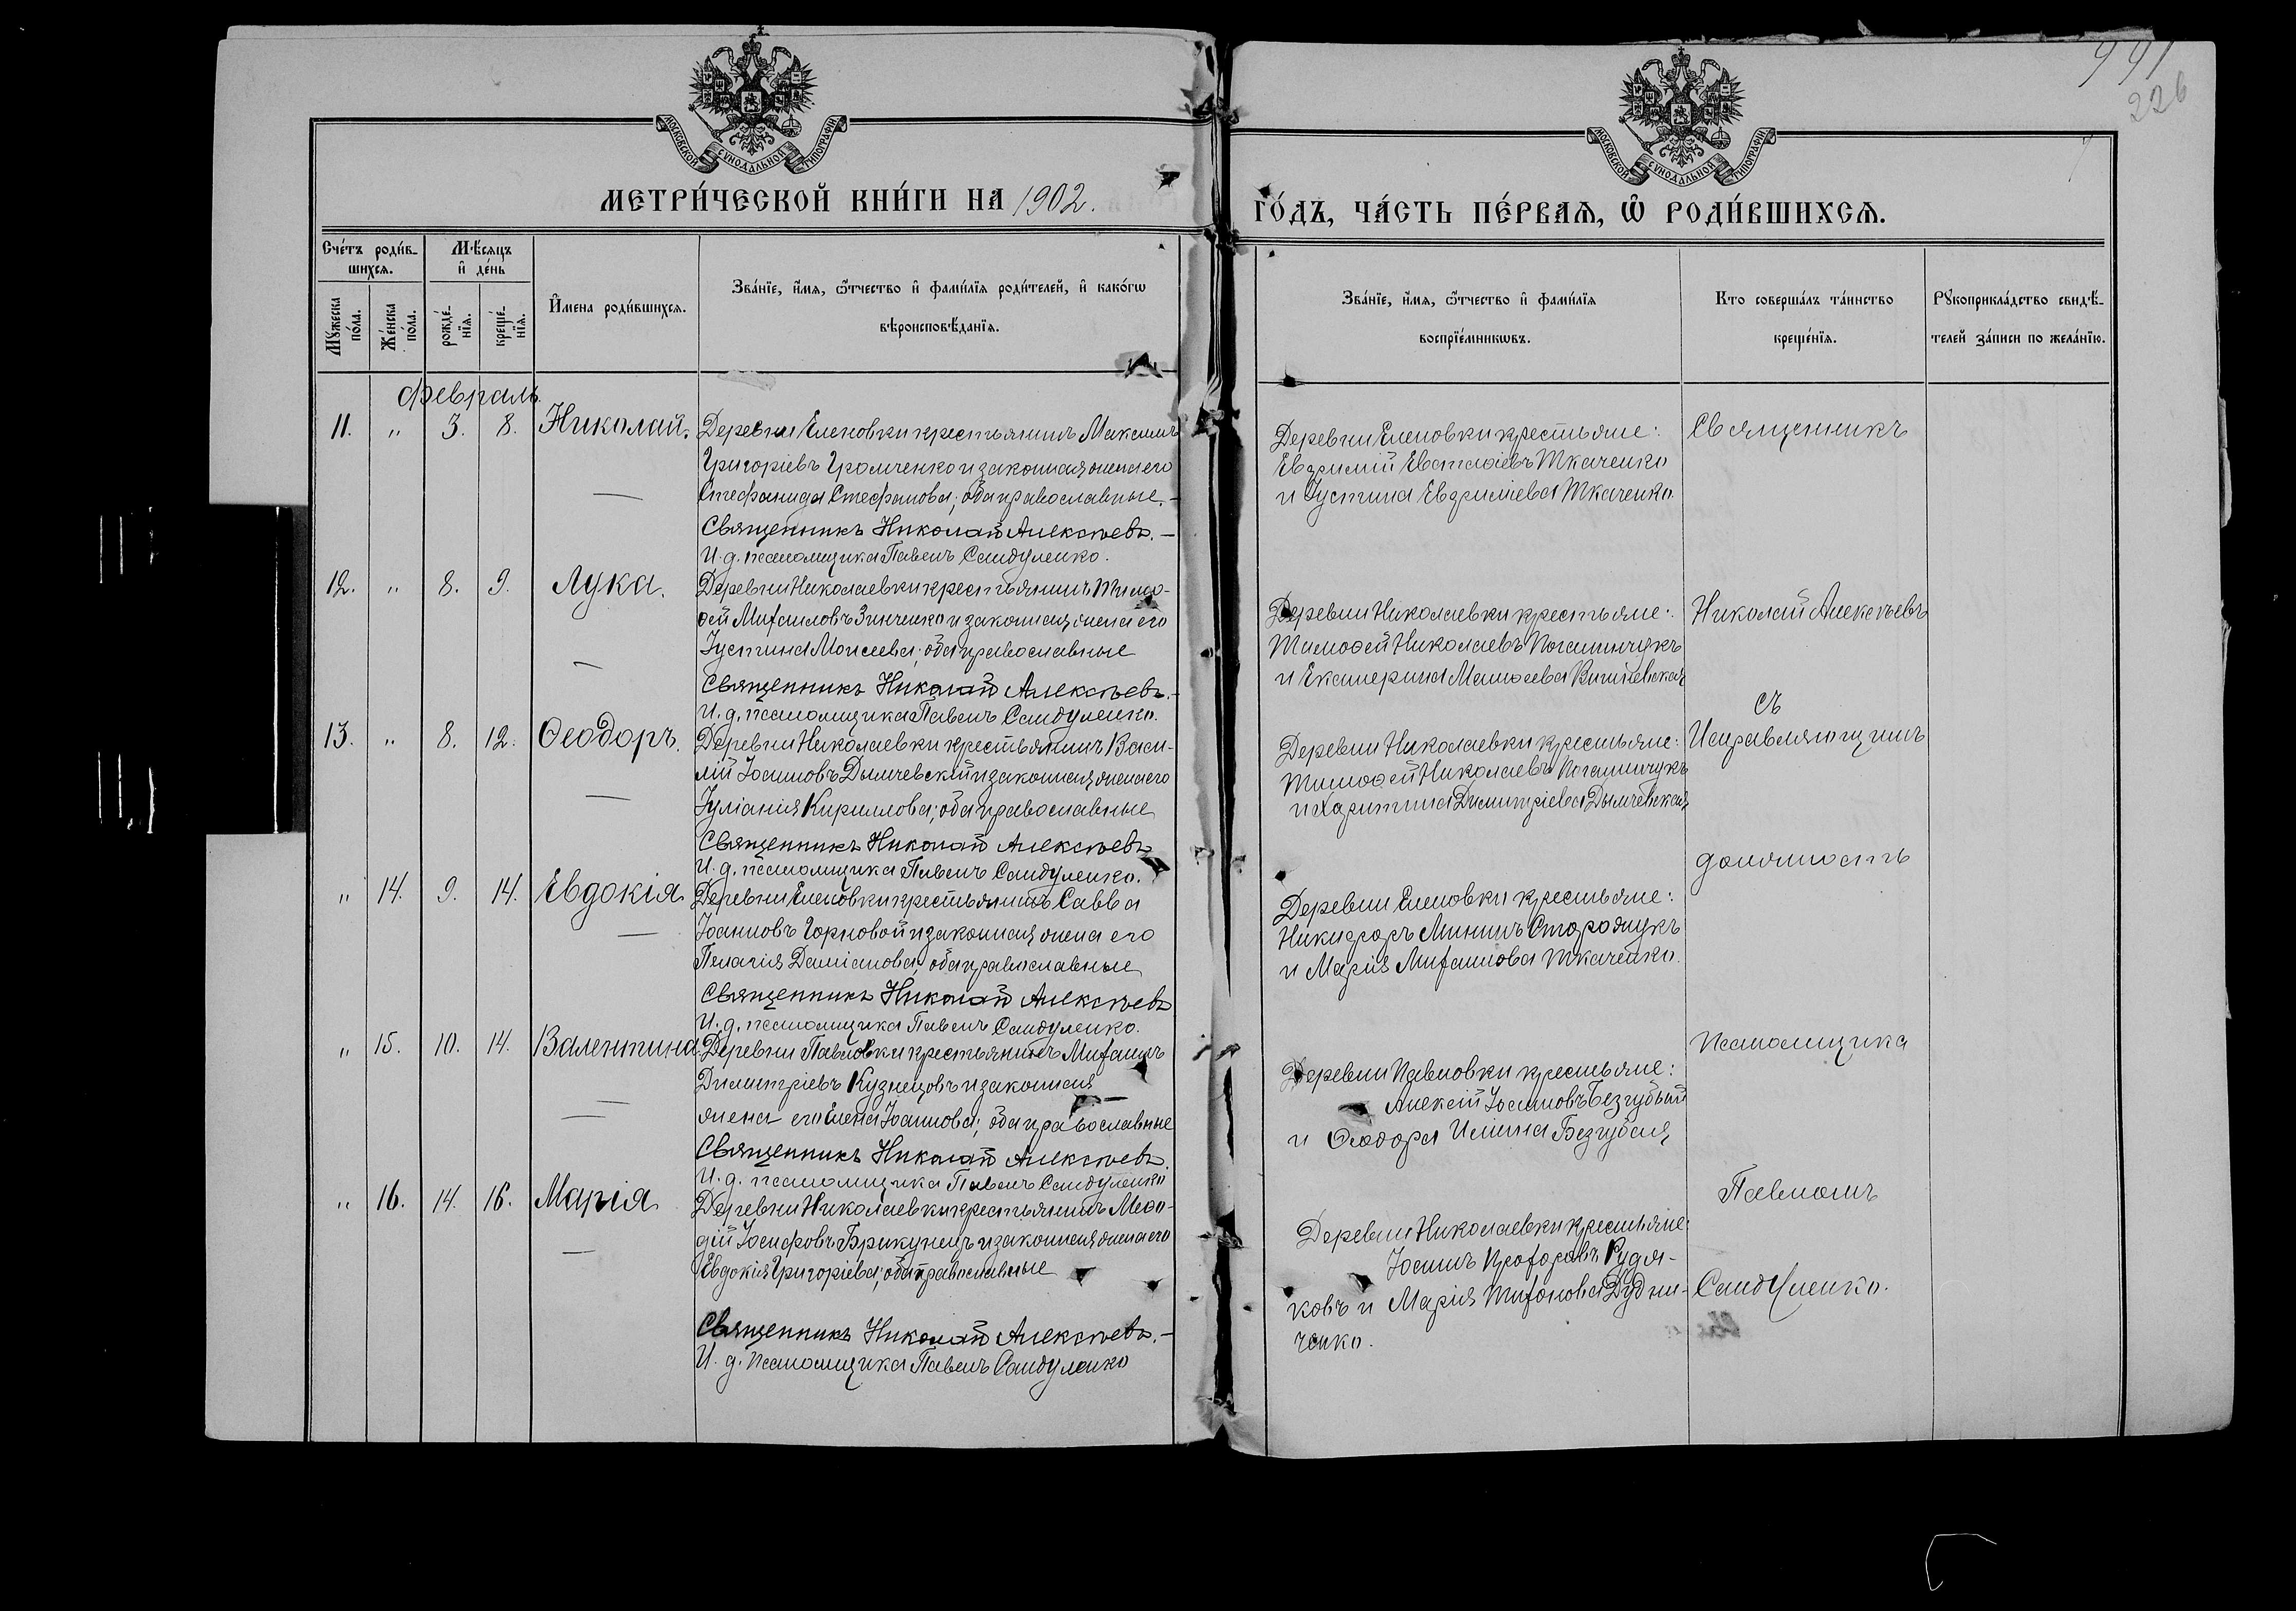 991
226
МОСКОВСКОЙ СѴНОДАЛЬНОЙ ТИПОГРАФІИ
МОСКОВСКОЙ СѴНОДАЛЬНОЙ ТИПОГРАФІИ
МЕТРИ́ЧЕСКОЙ КНИ́ГИ НА 1902.
ГО́ДЪ, ЧА́СТЬ ПЕ́РВАѦ, Ѡ҆ РОДИ́ВШИХСѦ.
Сче́тъ роди́вшихсѧ.
Мꙋ́жеска по́ла.
Же́нска по́ла.
Мѣ́сѧцъ и҆ де́нь
рожде́нїѧ.
креще́нїѧ.
И҆мена роди́вшихсѧ.
Зва́нїе, и҆́мѧ, ѻ҆́тчество и҆ фами́лїѧ роди́телей, и҆ како́гѡ
вѣроисповѣ́данїѧ.
Зва́нїе, и҆́мѧ, ѻ҆́тчество и҆ фами́лїѧ
воспрїе́мникѡвъ.
Кто соверша́лъ та́инство
креще́нїѧ.
Рꙋкоприкла́дство свидѣ́-
телей за́писи по жела́нїю.
Февраль.
11. " 3. 8. Николай.
Деревни Еленовки крестьянинъ Максимъ
Григоріевъ Громченко и законная жена его
Стефанида Стефанова; оба православные.
Священникъ Николай Алексѣевъ.
И. д. псаломщика Павелъ Сандуленко.
Деревни Еленовки крестьяне:
Ткаченко
и Іустина Ткаченко.
12. " 8. 9. Лука.
Деревни Николаевки крестьянинъ Тимо-
ѳей Михаиловъ Зинченко и законная жена его
Іустина Моисеева; оба православные
Священникъ Николай Алексѣевъ.
И. д. псаломщика Павелъ Сандуленко.
Деревни Николаевки крестьяне:
Тимоѳей Николаевъ
и Екатерина Вишневская
13. " 8. 12. Ѳеодоръ.
Деревни Николаевки крестьянинъ Васи-
лій Іоанновъ Дымчевскій и законная жена его
Іуліанія Кириллова; оба православные
Священникъ Николай Алексѣевъ
И. д. псаломщика Павелъ Сандуленко.
Деревни Николаевки крестьяне:
Тимоѳей Николаевъ
и Харитина Димитріева Дымчевская
" 14. 9. 14. Евдокія
Деревни Еленовки крестьянинъ Савва
Іоанновъ Горновой и законная жена его
Пелагія Даміанова; оба православные
Священникъ Николай Алексѣевъ
И. д. псаломщика Павелъ Сандуленко.
Деревни Еленовки крестьяне:
Никифоръ Мининъ
и Марія Михаилова Ткаченко.
" 15. 10. 14. Валентина
Деревни Павловки крестьянинъ Михаилъ
Димитріевъ Кузнецовъ и законная
жена его Елена Іоаннова; оба православные
Священникъ Николай Алексѣевъ.
И. д. псаломщика Павелъ Сандуленко
Деревни Павловки крестьяне:
Алексій Іоанновъ Безгубый
и Ѳеодора Ильина Безгубая
" 16. 14. 16. Марія
Деревни Николаевки крестьянинъ Меѳо-
дій Іосифовъ Брикунецъ и законная жена его
Евдокія Григоріева; оба православные
Священникъ Николай Алексѣевъ.
И. д. псаломщика Павелъ Сандуленко
Деревни Николаевки крестьяне:
Іоаннъ Прохоровъ Рудя-
ковъ и Марія Тихонова Дудни-
ченко.
Священникъ
Николай Алексѣевъ
съ
Исправляющимъ
должность
псаломщика
Павломъ
Сандуленко.